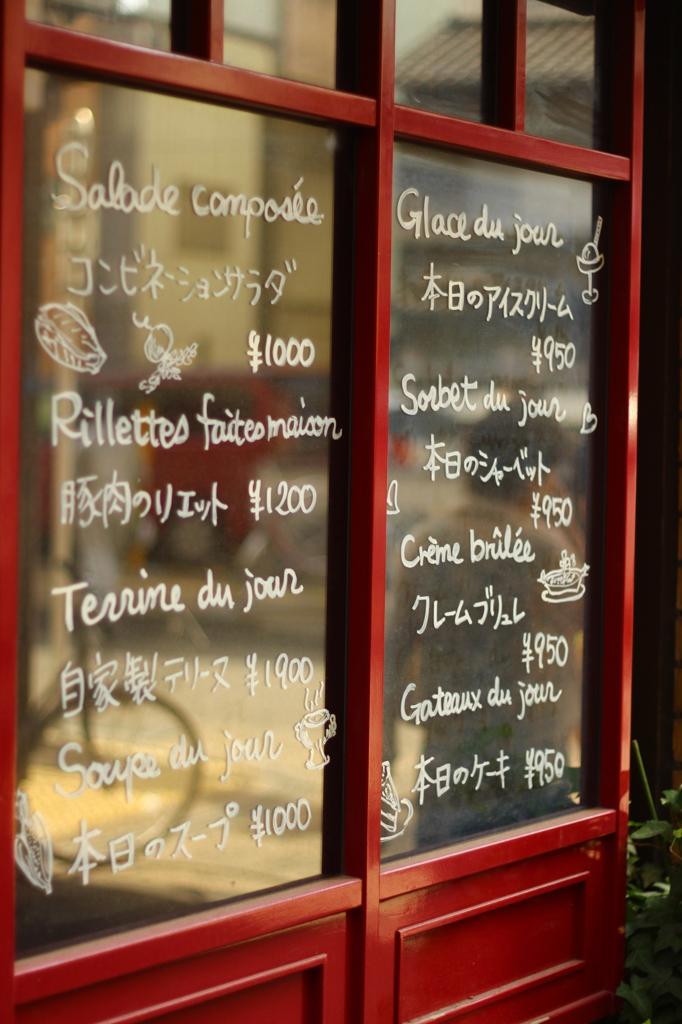 Salade composée
コンビネーションサラダ
¥1000
Rillettes faites maison
豚肉のリエット ¥1200
Terrine du jour
自家製テリーヌ ¥1900
Soupe du jour
本日のスープ ¥1000
Glace du jour
本日のアイスクリーム
¥950
Sorbet du jour
本日のシャーベット
¥950
Crème brûlée
クレームブリュレ
¥950
Gateaux du jour
本日のケーキ ¥950